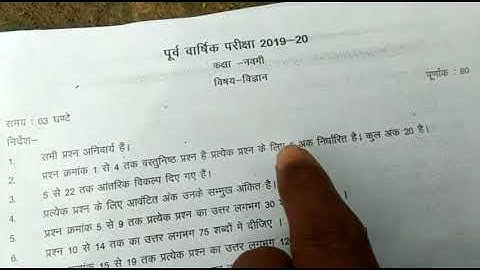 पूर्व वार्षिक परीक्षा 2019–20
कक्षा –नवमी
विषय–विज्ञान
समय : 03 घण्टे
पूर्णांक : 80
निर्देश–
1. सभी प्रश्न अनिवार्य है।
2. प्रश्न क्रमांक 1 से 4 तक वस्तुनिष्ठ प्रश्न है प्रत्येक प्रश्न के लिए अंक निर्धारित है। कुल अंक 20 है।
3. 5 से 22 तक आंतरिक विकल्प दिए गए है।
4. प्रत्येक प्रश्न के लिए आवंटित अंक उनके सम्मुख अंकित है।
5. प्रश्न क्रमांक 5 से 9 तक प्रत्येक प्रश्न का उत्तर लगभग 30
6. प्रश्न 10 से 14 तक का उत्तर लगभग 75 शब्दों में दीजिए ।
15 से 19 तक प्रत्येक प्रश्न का उत्तर लगभग